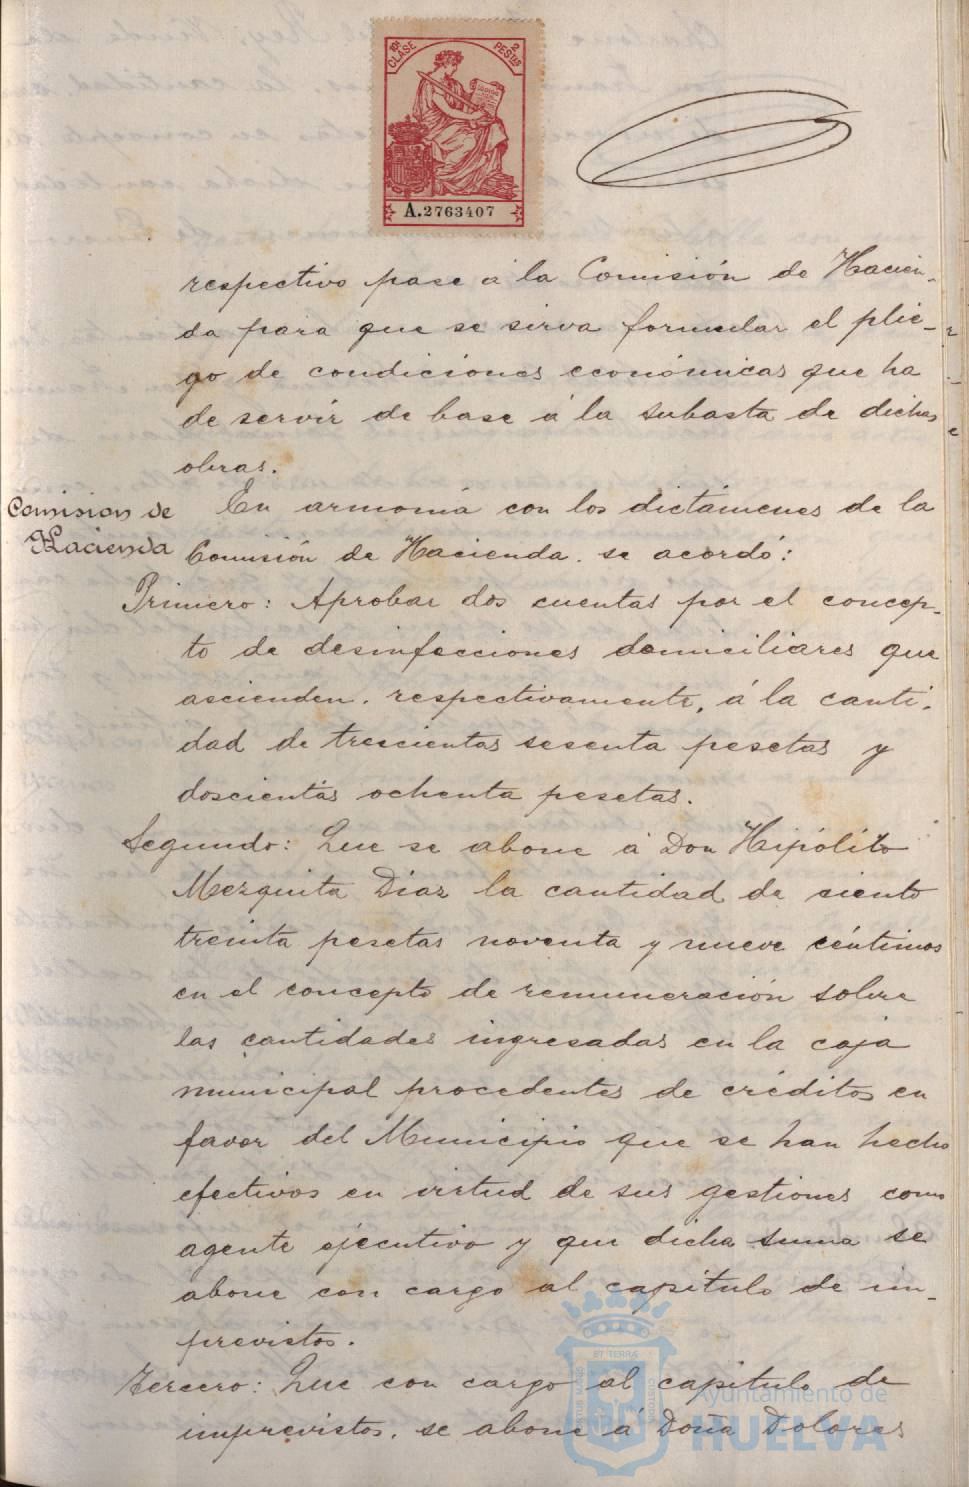 10ª CLASE
2 PESTAS
A.2763407
respectivo pase á la Comisión de Hacien-
da para que se sirva formular el plie-
go de condiciones económicas que ha
de servir de base á la subasta de dichas
obras.
Comision de
Hacienda
En armonía con los dictámenes de la
Comisión de Hacienda. se acordó:
Primero: Aprobar dos cuentas por el concep-
to de desinfecciones domiciliares que
ascienden. respectivamente, á la canti-
dad de trescientas sesenta pesetas y
doscientas ochenta pesetas.
Segundo: Que se abone á Don Hipólito
Mezquita Diaz la cantidad de ciento
treinta pesetas noventa y nueve céntimos
en el concepto de remuneración sobre
las cantidades ingresadas en la caja
municipal procedentes de créditos en
favor del Municipio que se han hecho
efectivos en virtud de sus gestiones como
agente ejecutivo y que dicha suma se
abone con cargo al capitulo de im-
previstos.
Tercero: Que con cargo al capitulo de
imprevistos. se abone á Doña Dolores
ET TERRÆ
PORTUS MARIS
CUSTODIA
Ayuntamiento de
HUELVA